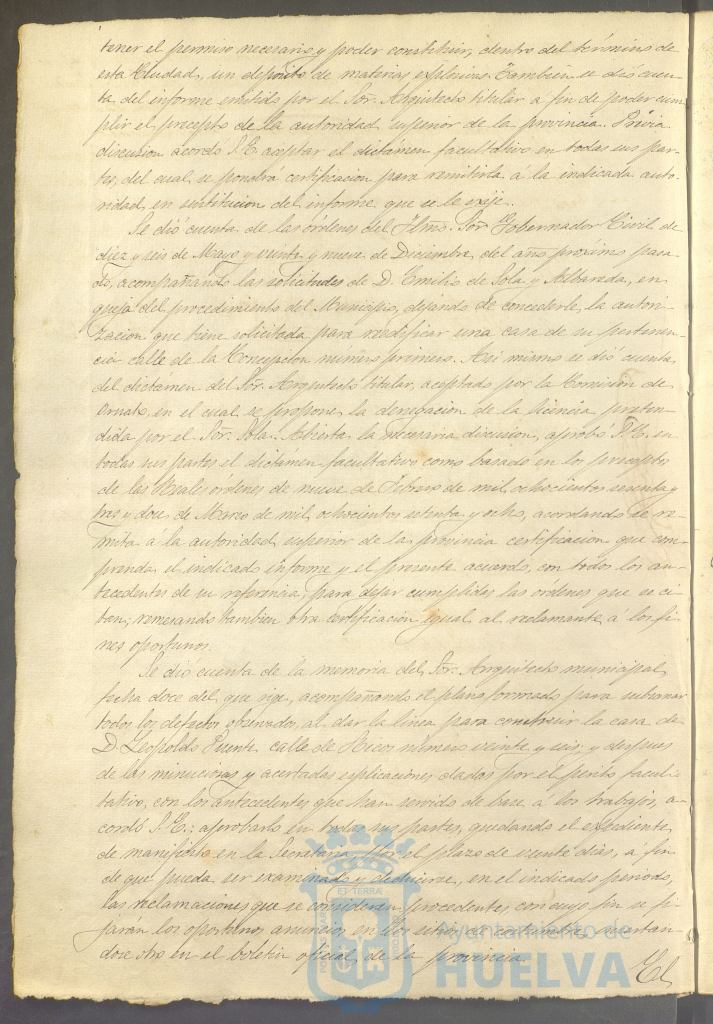 tener el permiso necesario, y poder constituir, dentro del término de
esta Ciudad, un depósito de materias explosivas. Tambien se dió cuen-
ta, del informe emitido por el Sor. Arquitecto titular á fin de poder cum
plir el precepto de la autoridad superior de la provincia. Prévia
discusion acordó S. E. aceptar el dictámen facultativo en todas sus par-
tes, del cual se pondrá certificacion para remitirla á la indicada auto-
ridad en sustitucion del informe que se le exije.
Se dió cuenta de las órdenes del Iltmo. Sor. Gobernador Civil de
diez y seis de Mayo y veinte y nueve de Diciembre, del año próximo pasa-
do, acompañando las solicitudes de D. Emilio de Sola y Albareda, en
queja del procedimiento del Municipio, dejando de concederle, la autori-
zacion que tiene solicitada para reedificar una casa de su pertenen-
cia calle de la Concepcion número primero. Asi mismo se dió cuenta,
del dictamen del Sor. Arquitecto titular, aceptado por la Comision de
Ornato, en el cual se propone, la denegacion de la licencia preten-
dida por el Sor. Sola. Abierta la necesaria discusion, aprobó S. E. en
todas sus partes el dictámen facultativo como basado en los preceptos
de las Reales órdenes de nueve de Febrero de mil ochocientos sesenta y
tres y doce de Marzo de mil ochocientos setenta y ocho, acordando se re-
mita a la autoridad superior de la provincia certificacion que com-
prenda el indicado informe y el presente acuerdo, con todos los an-
tecedentes de su referencia, para dejar cumplidas las órdenes que se ci-
tan; remesando tambien otra certificacion igual al reclamante á los fi-
nes oportunos.
Se dió cuenta de la memoria del Sor. Arquitecto municipal,
fecha doce del que rige, acompañando el plano formado para subsanar
todos los defectos observados, al dar la línea para construir la casa de
D. Leopoldo Puente calle de Ricos número veinte y seis, y despues
de las minuciosas y acertadas esplicaciones dadas por el perito facul-
tativo, con los antecedentes que han servido de base á los trabajos, a-
cordó S. E.; aprobarlo en todas sus partes, quedando el espediente,
de manifiesto en la Secretaria por el plazo de veinte dias, a fin
de que pueda ser examinado y deducirse, en el indicado periodo,
las reclamaciones que se consideren procedentes, con cuyo fin se fi-
jaran los oportunos anuncios en los sitios de costumbre, insertan-
dose otro en el boletin oficial de la provincia.
El
Ayuntamiento de
HUELVA